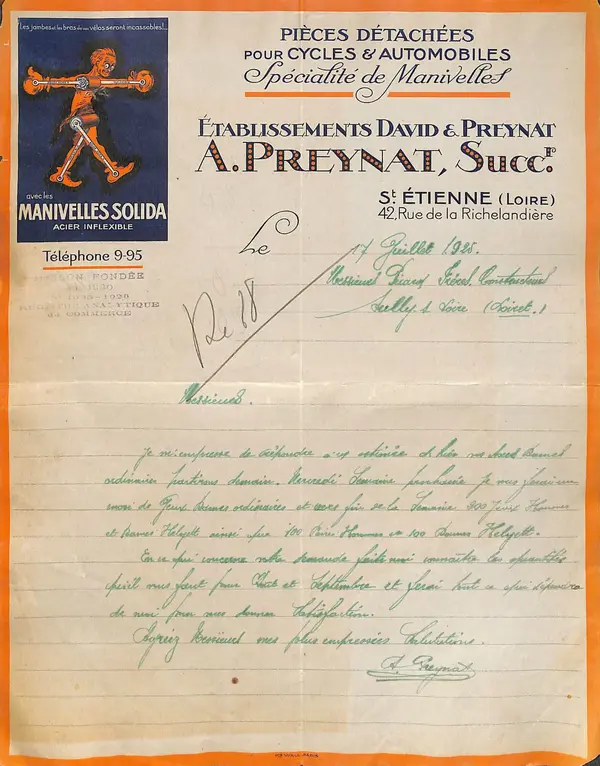 "Les jambes et les bras de nos vélos seront incassables!...
avec les
MANIVELLES SOLIDA
ACIER INFLEXIBLE
Téléphone 9-95
MAISON FONDÉE
PIÈCES DÉTACHÉES
POUR CYCLES & AUTOMOBILES
Spécialité de Manivelles
ÉTABLISSEMENTS DAVID & PREYNAT
A. PREYNAT, SUCCR.
ST ÉTIENNE (LOIRE)
42, Rue de la Richelandière
Le 17 Juillet 1925.
Messieurs Frères Constructeurs
Sully s Loire (Loiret.)
Re 18
Messieurs.
Je m'empresse de répondre à v/ estimée d hier vos
ordinaires partirons demain. Mercredi Semaine prochaine je vous
de Jeux Dames ordinaires et vers fin de la Semaine 200 Jeux Hommes
et Dames Helyett ainsi que 100 Paires Hommes et 100 Dames Helyett.
En ce qui concerne votre demande faites moi connaître les quantités
qu'il vous faut pour Août et Septembre et ferai tout ce qui dépendra
de moi pour vous donner Satisfaction.
Agréez Messieurs mes plus empressées Salutations.
A. Preynat